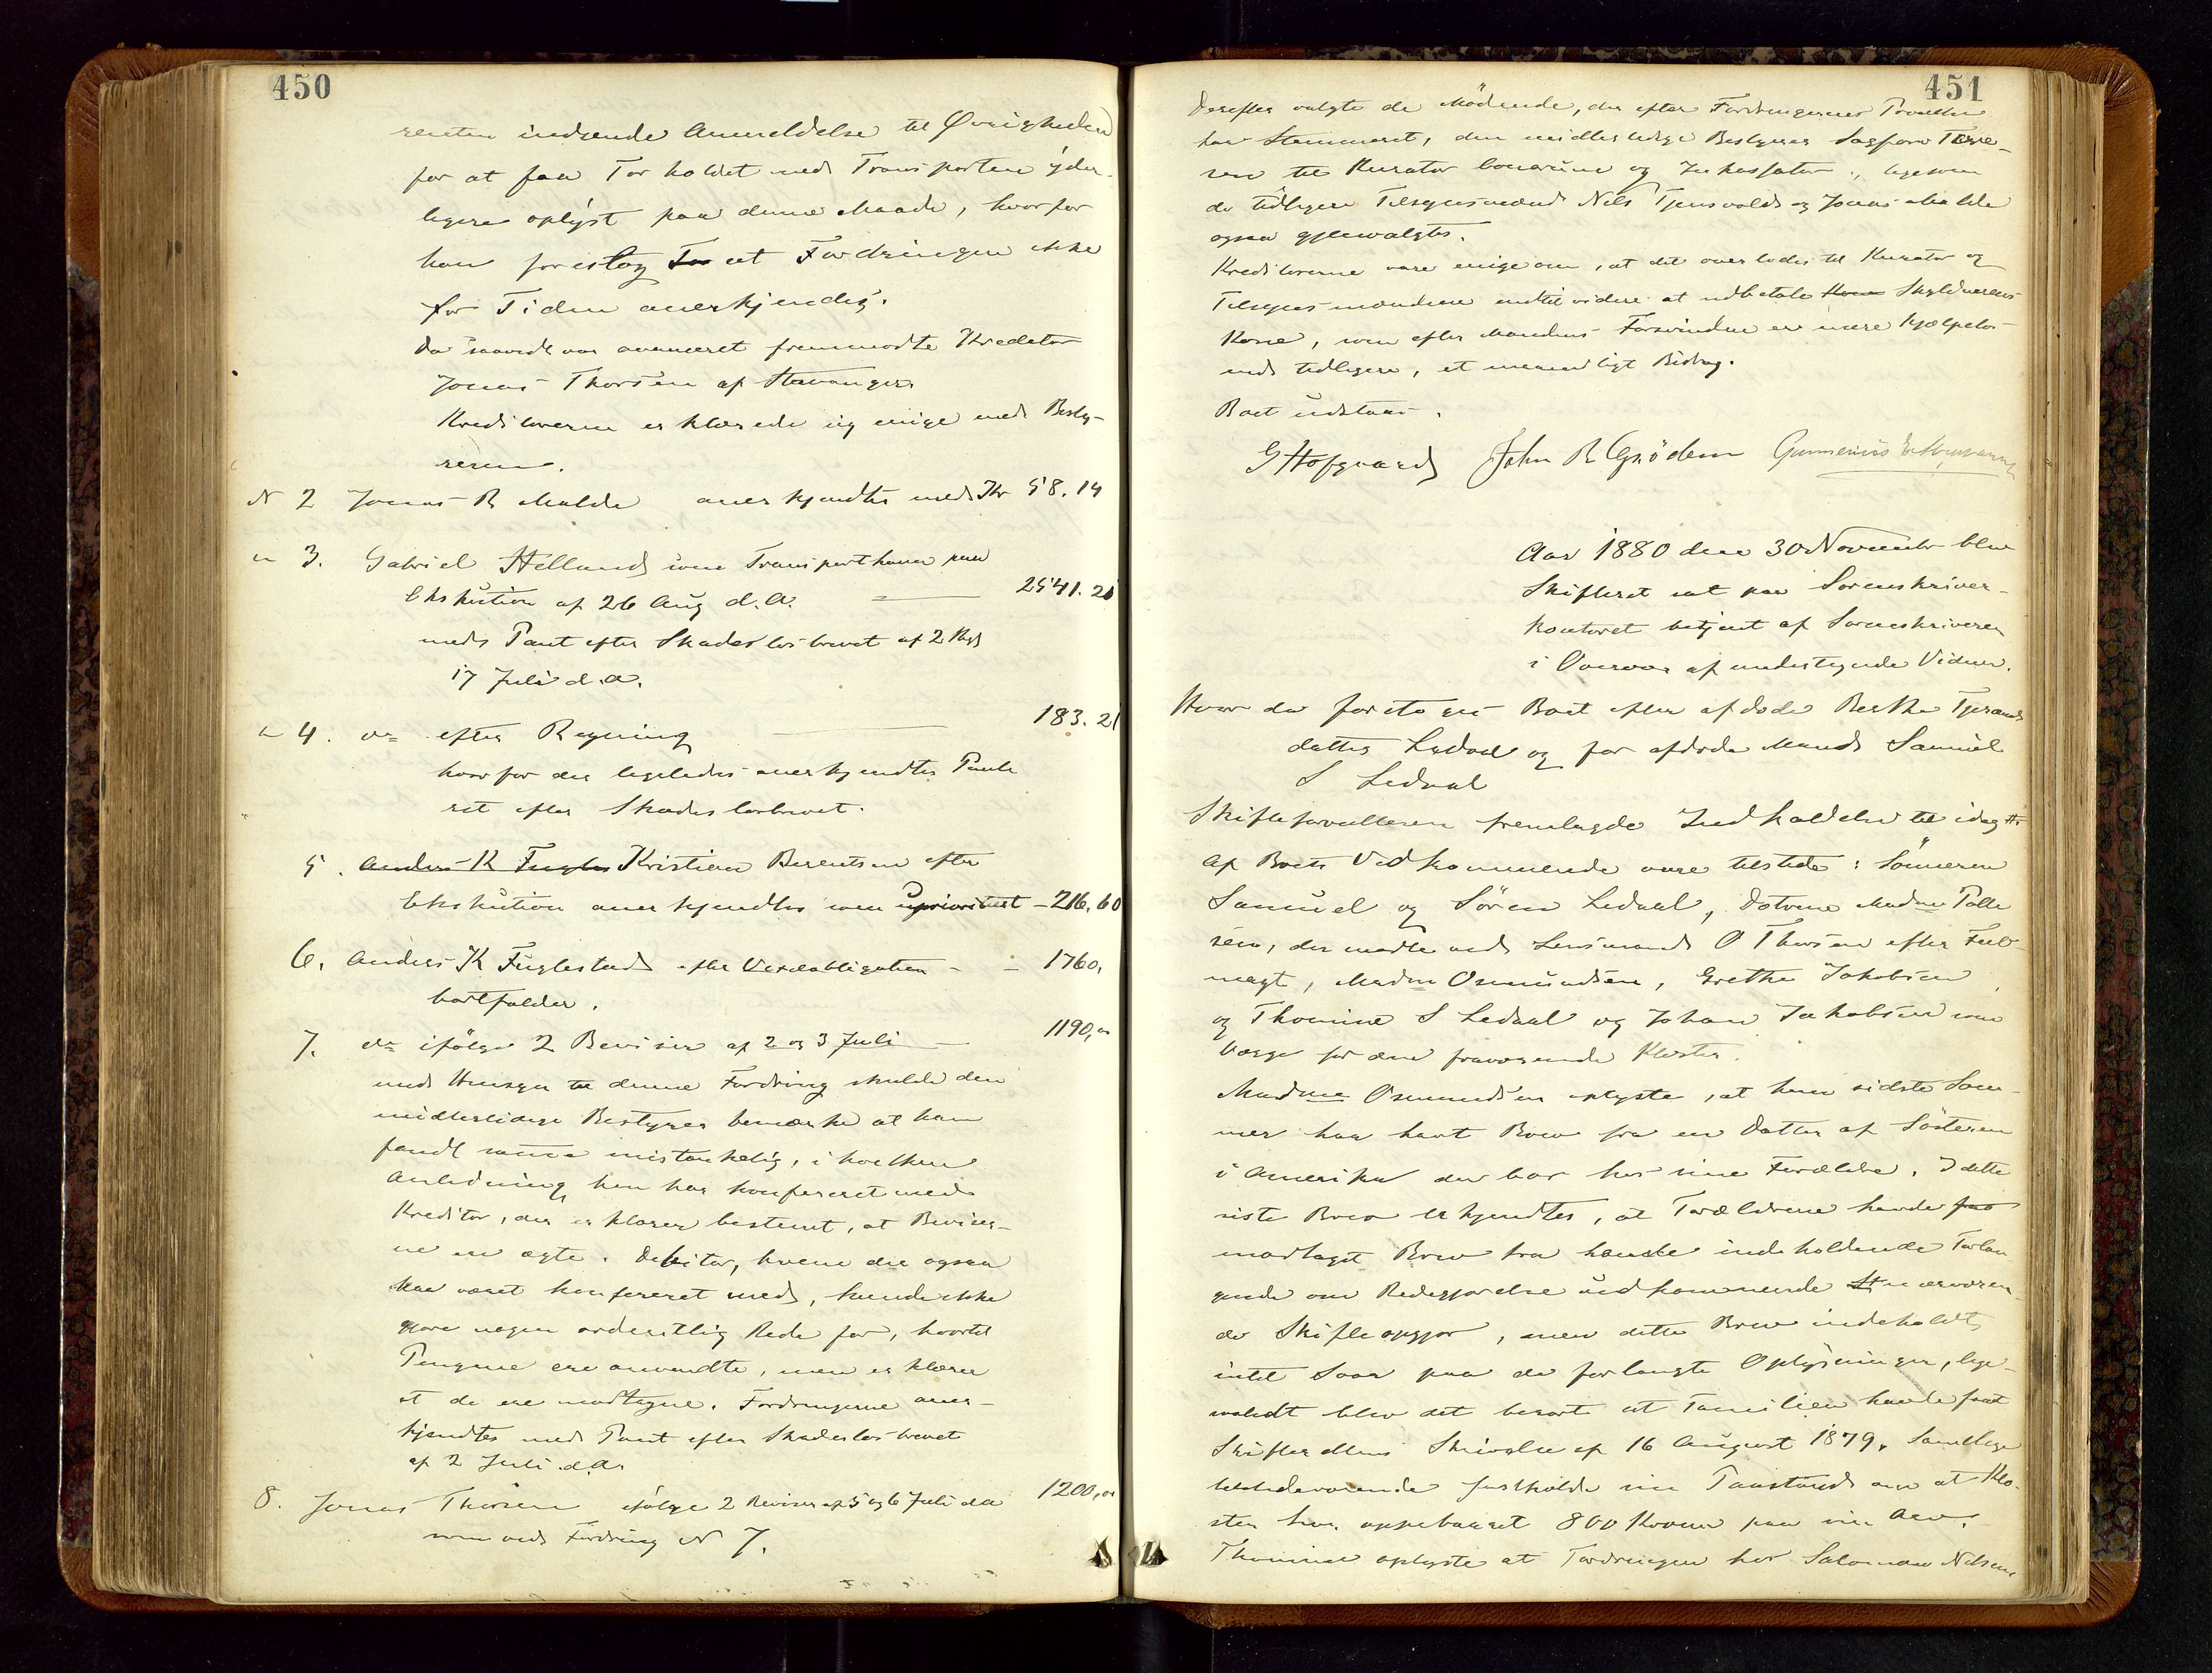 450
renten indsende Anmeldelse til Øvrigheden
for at faa For holdet med Transporten yder-
ligere oplyst paa denne Maade, hvorfor
han foreslog For at Fordringen ikke
for Tiden anerkjendes.
Da saavidt var avanceret fremmødte Kreditor
Jonas Thorsen af Stavanger.
Kreditorerne erklærede sig enige med Besty-
reren.
N 2 Jonas R Malde anerkjendtes med Kr 58.14
" 3. Gabriel Helland som Transporthaver paa
Ekskution af 26 Aug d.A. 2541.21
med Pant efter Skadesløsbrevet af 2
17 Juli d.A.
" 4. do efter Regning 183.21
hvorfor der ligeledes anerkjendtes Pante
ret efter Skadesløsbrevet.
5. Anders K Fugles Kristian Berentsen efter
Ekskution anerkjendtes som uprioritert - 216,60
6. Anders K Fuglestad efter Vexelobligation - - 1760,
bortfalder.
7. do ifølge 2 Beviser af 2 og 3 Juli - 1190,00
med Hensyn til denne Fordring skulde den
midlertidige Bestyrer bemærke at han
fandt samme mistænkelig, i hvilken
Anledning han har konfereret med
Kreditor, der erklærer bestemt, at Beviser-
ne ere ægte. Debitor, hvem der ogsaa
har været konfereret med, kunde ikke
gjøre nogen ordentlig Rede for, hvortil
Pengene ere anvendte, men erklærer
at de ere modtagne. Fordringerne aner-
kjendtes med Pant efter Skadesløsbrevet
af 2 Juli d.A.
8. Jonas Thorsen ifølge 2 Beviser af 5 og 6 Juli da 1200,00
som ved Fordring N 7.
451
Derefter valgte de Mødende, der efter Fordringernes
har Stemmeret, den midlertidige Bestyrer Sagfører
sen til Kurator bonorum og Inkassator, ligesom
de tidligere Tilsynsmænd Nils Tjensvold og Jonas Malde
ogsaa gjenvalgtes.
Kreditorerne vare enige om, at det overlodes til Kurator og
Tilsynsmændene indtil videre at udbetale Kone Skyldnerens
Kone, som efter Mandens Forsvinden er mere hjælpeløs
end tidligere, et maanedligt Bidrag.
Boet udstaar.
G Hofgaard John R Grödem Gunnerius
Aar 1880 den 30 November blev
Skifteret sat paa Sorenskriver-
kontoret betjent af Sorenskriveren
i Overvær af undertegnede Vidner.
Hvor da foretoges Boet efter afdøde Berthe Tjerands
datter Ledaal og før afdøde Mand Samuel
S Ledaal
Skifteforvalteren fremlagde Indkaldelse til idag
Af Boets Vedkommende vare tilstede: Sønnerne
Samuel og Sören Ledaal, Døtrene Madme Tolle
sen, der mødte ved Lensmand O Thorsen efter Fuld-
magt, Madme Osmundsen, Grethe Jakobsen
og Thomine S Ledaal og Johan Jakobsen som
Værge for den fraværende Kloster.
Madme Osmundsen oplyste, at hun sidste Som-
mer har havt Brev fra en Datter af Søsteren
i Amerika der bor hos sine Forældre. I dette
siste Brev erkjendtes, at Forældrene havde faa
modtaget Brev fra hende indeholdende Forlan
gende om Redegjørelse vedkommende nærværen-
de Skifteopgjør, men dette Brev indeholdt
intet Svar paa de forlangte Oplysninger, lige-
saalidt blev det berørt at Familien havde faaet
Skifterettens Skrivelse af 16 August 1879. Samtlige
tilstedeværende fastholde sin Paastand om at Klo-
ster har oppebaaret 800 Kroner paa sin Arv.
Thomine oplyste at Fordringen hos Salomon Nilsens